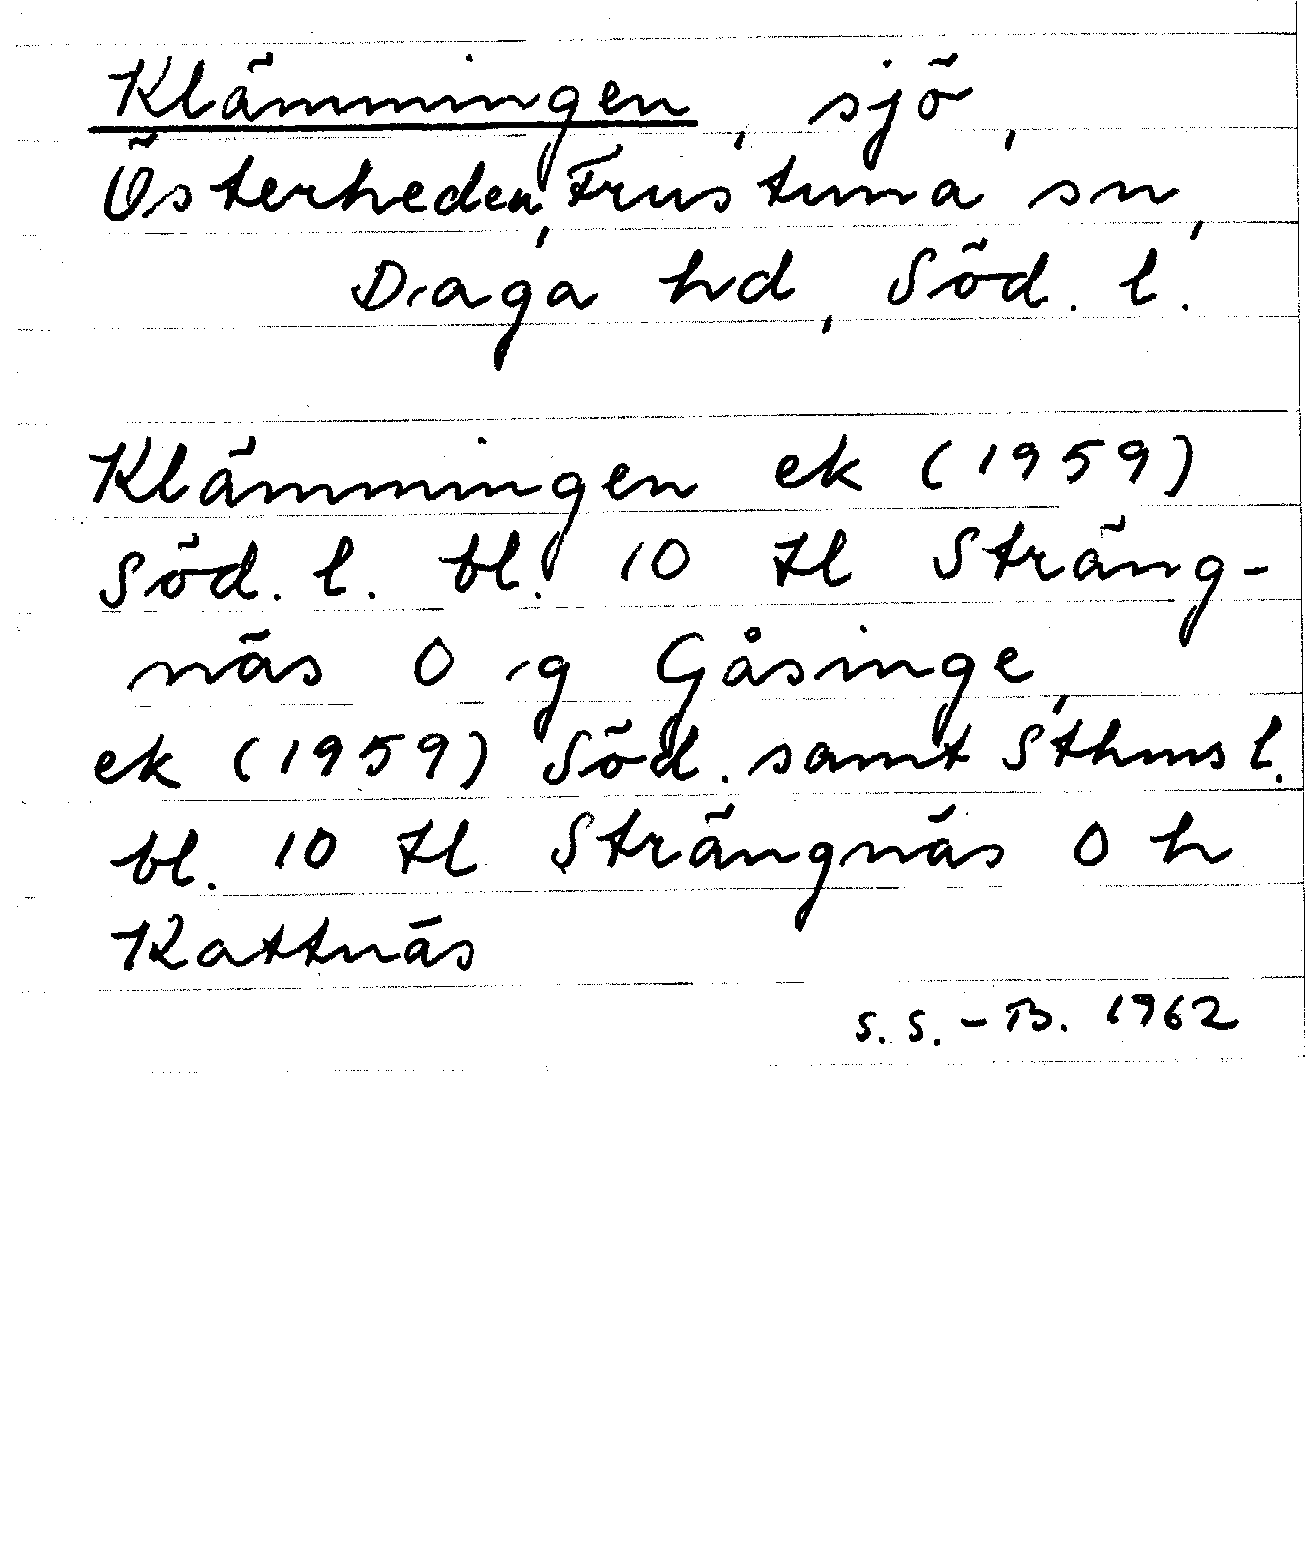 Klämmingen, sjö,
Österheden, Frustuna sn,
Daga hd, Söd. l.
Klämmingen ek (1959)
Söd. l. bl. 10 tl Sträng-
näs O g Gåsinge,
ek (1959) Söd. samt Sthms l.
bl. 10 tl Strängnäs O h
Kattnäs
S. S. - B. 1962